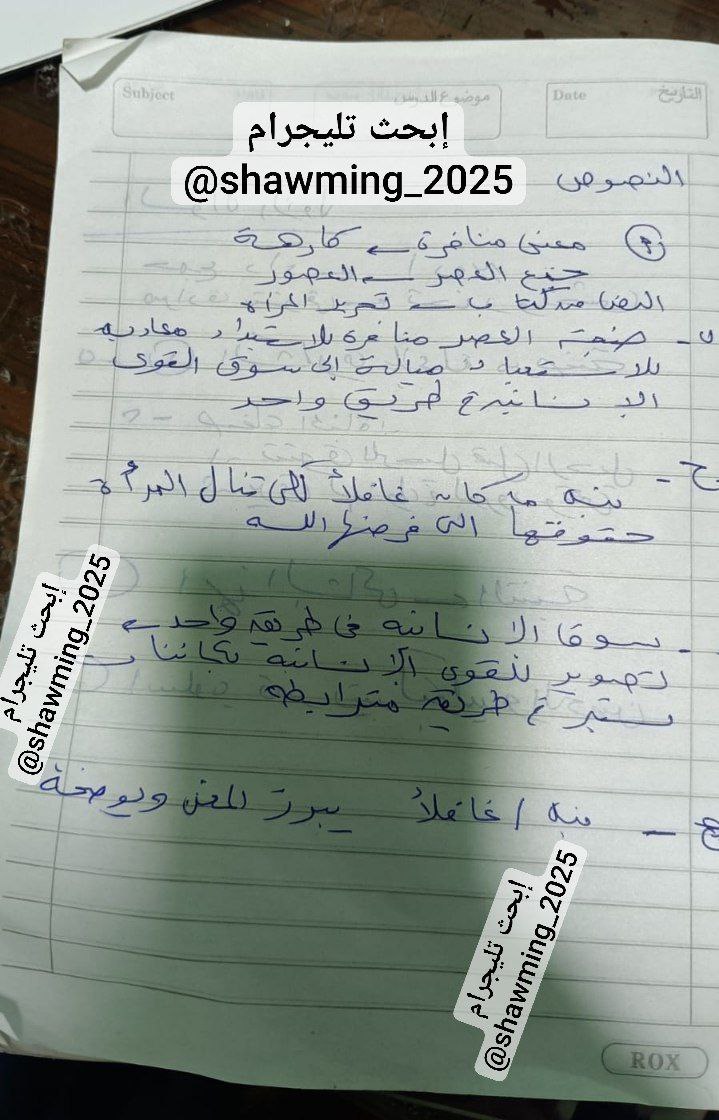 Subject
موضوع الدرس
Date
التاريخ
إبحث تليجرام
@shawming_2025
النصوص
معنى منافرة ← كارهة
جمع العصر ← العصور
تحرير المرأة
صفة العصر منافرة للاستبداد معادية
للاستعباد ميالة إلى سوق القوى
الإنسانية في طريق واحد
ج -
نبه من كان غافلاً لكي تنال المرأة
حقوقها التي فرضها الله
سوق الإنسانية في طريق واحد ←
تصوير للقوى الإنسانية بكائنات
تسير في طريق مترابطة
نبه / غافلاً يبرز المعنى ويوضحه
إبحث تليجرام
@shawming_2025
إبحث تليجرام
@shawming_2025
ROX